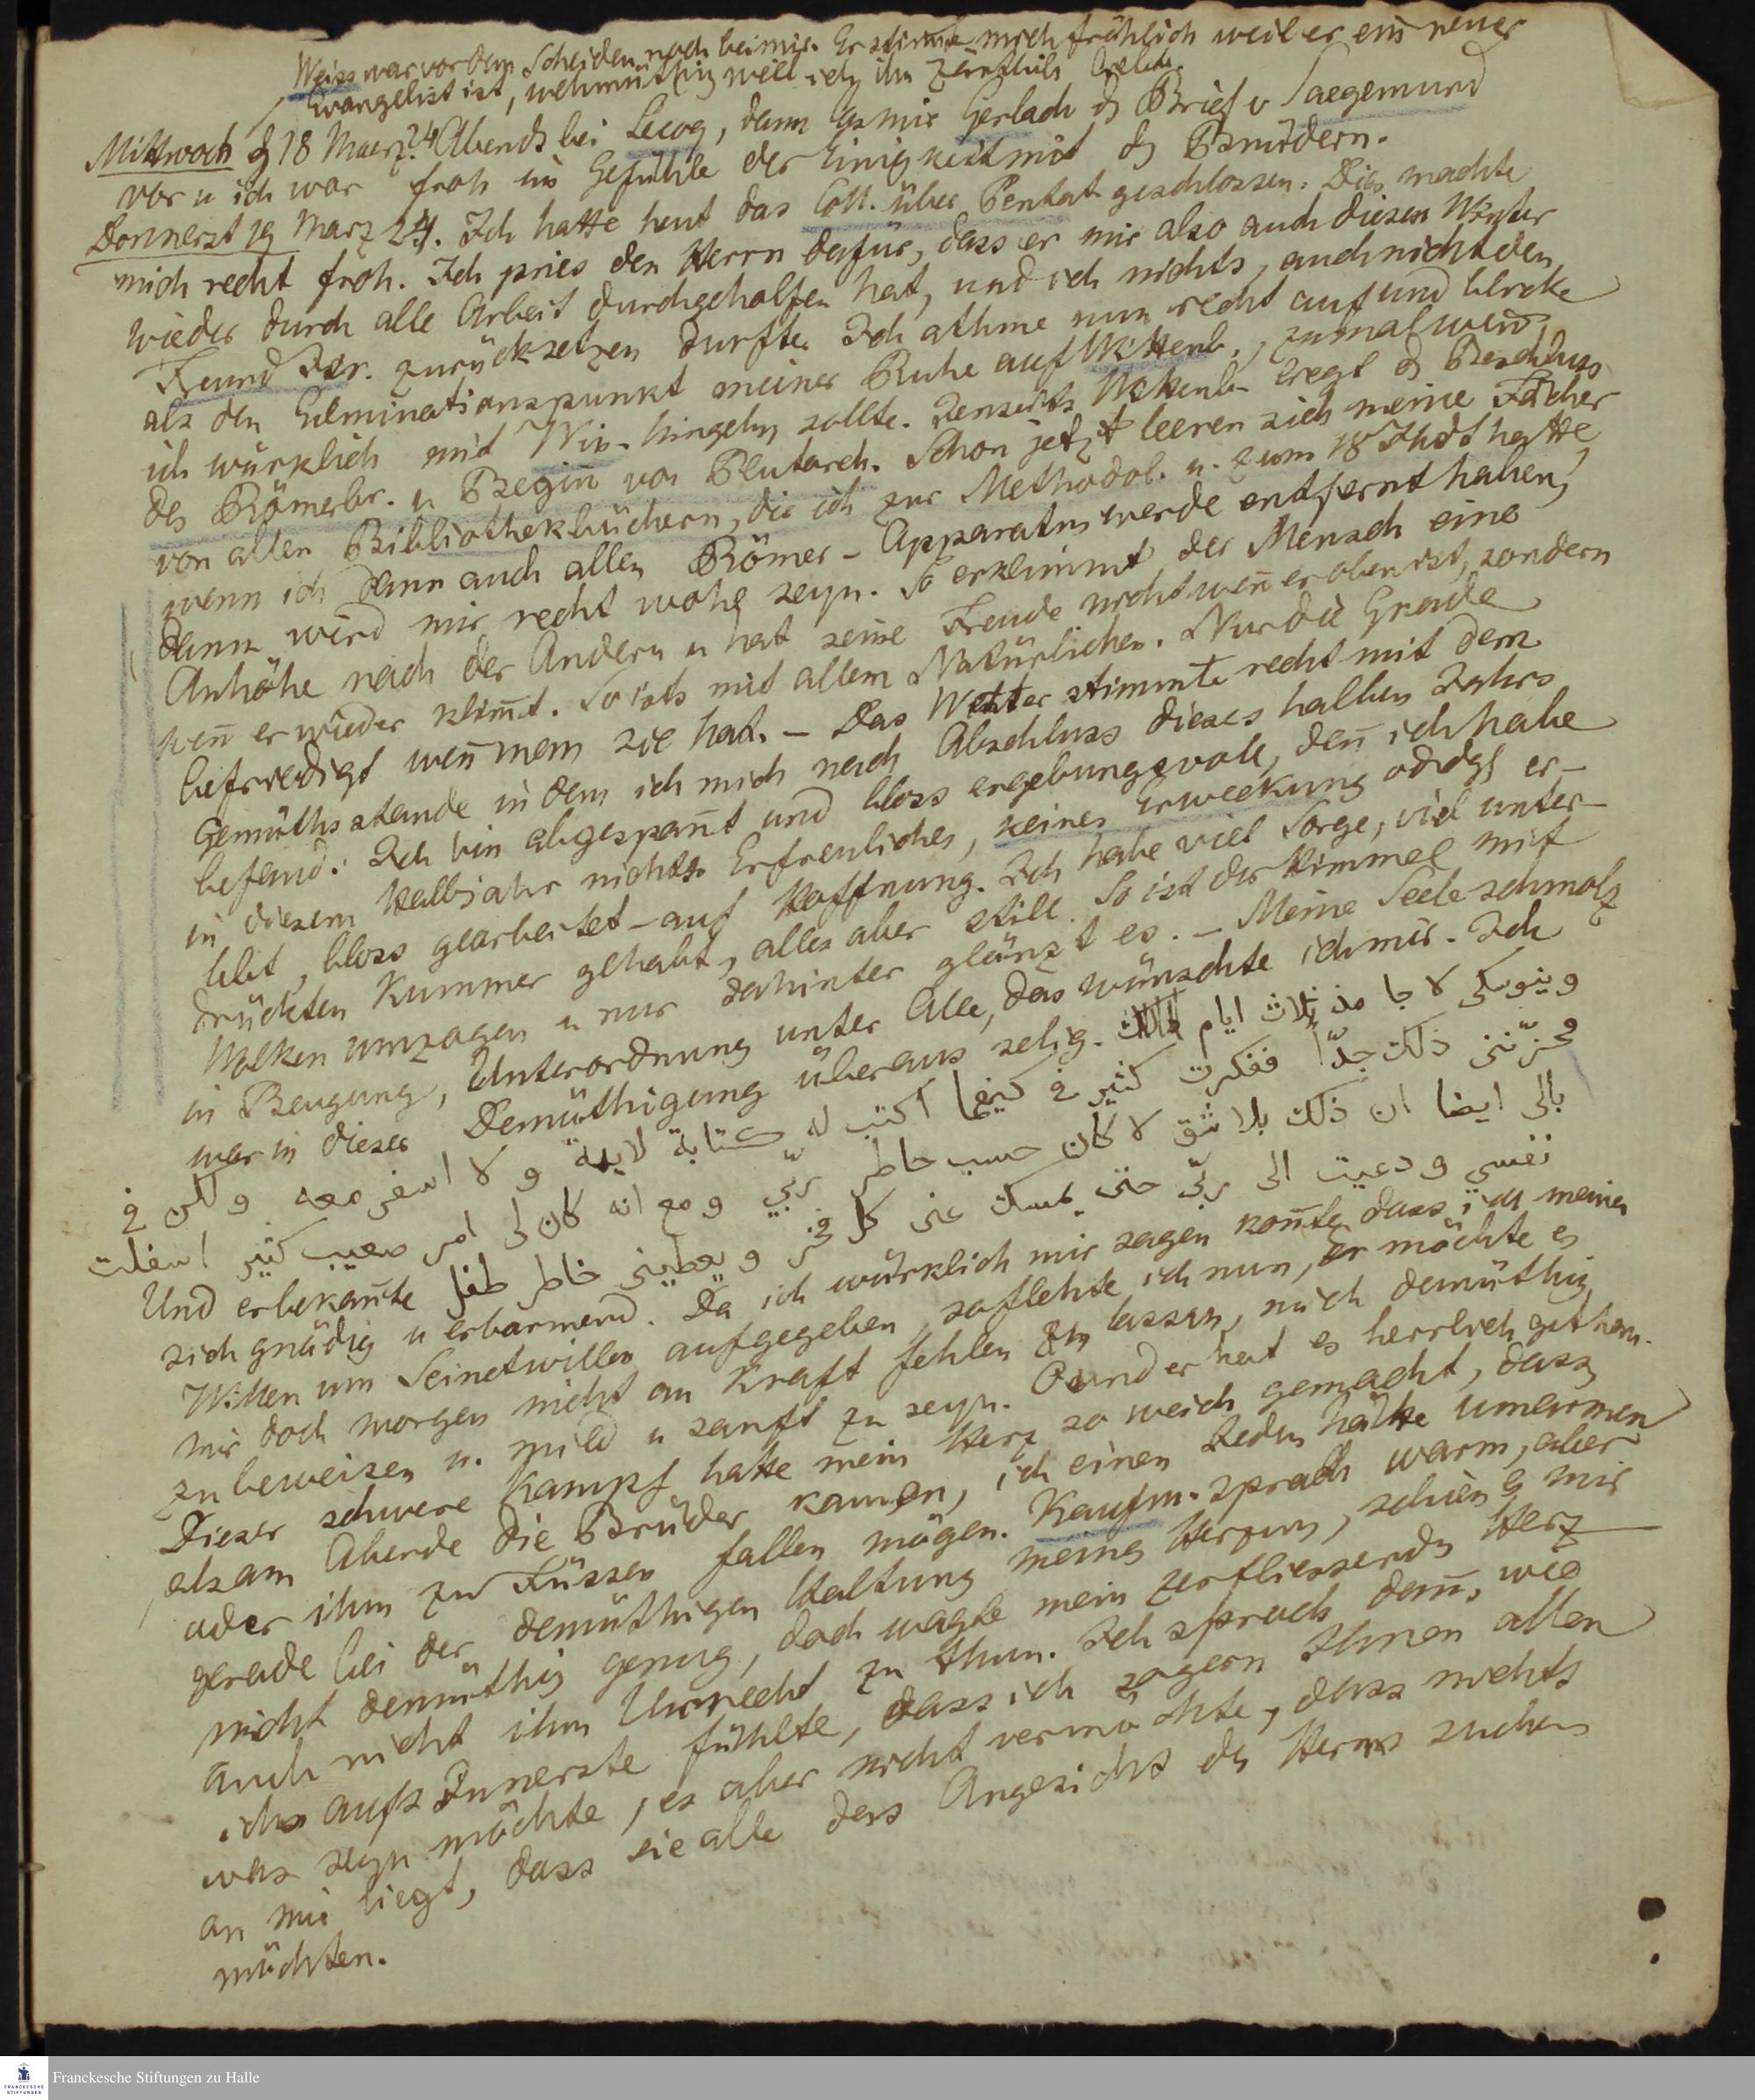 Weiss war vor dem Scheiden noch bei mir. Er stimmte mich fröhlich weil er ein neuer
Evangelist ist, wehmüthig weil ich ihn zärtlich liebte.
Mittwoch d 18 Maerz. 24 Abends bei Lecoq, dann las mir Gerlach d Brief v Saegemund
vor u ich war froh im Gefühle der Einigkeit mit d Brüdern.
Donnerst 19 Marz 24. Ich hatte heut das Coll. über Pentat geschlossen. Dies machte
mich recht froh. Ich pries den Herrn dafür, dass er mir also auch diesen Winter
wieder durch alle Arbeit durchgeholfen hat, und ich nichts, auch nicht den
Freund zurücksetzen durfte. Ich athme nun recht auf und blicke
als den Culminationspunkt meiner Ruhe auf Wittenb., zumal wenn
ich würklich mit hingehn sollte. Jenseits Wittenb. liegt d Beschluss
des Römerbr. u Begiñ von Plutarch. Schon jetzt leeren sich meine Fächer
von allen Bibliothekbüchern, die ich zur Methodol. u. zum 18 Jhdt hatte
wenn ich dann auch allen Römer-Apparatus werde entfernt haben,
dann wird mir recht wohl seyn. So erklimmt der Mensch eine
Anhöhe nach der Andern u hat seine Freude nicht weñ er oben ist, sondern
weñ er wieder klim̄t. So ists mit allem Natürlichen. Nur die Gnade
befriedigt weñ man sie hat. – Das Wetter stimmte recht mit dem
Gemüthsstande in dem ich mich nach Abschluss dieses halben Jahrs
befand: Ich bin abgespañt und bloss ergebungsvoll, deñ ich habe
in diesem Halbjahr nichts Erfreuliches, keines Erweckung er-
lebt, bloss gearbeitet – auf Hoffnung. Ich habe viel Sorge, viel unter-
drückten Kummer gehabt, alles aber still. So ist der Himmel mit
Wolken umzogen u nur dahinter glänzt es. – Meine Seele schmolz
in Beugung, Unterordnung unter Alle, das wünschte ich mir. Ich
war in dieser Demüthigung überaus selig. وينوسكى لا جا منذ ثلاث ايام
وحزنني ذلك جدّا ففكرت كثير في كيفما اكتب له كتابة لايقة و لا اسفر معه ولكن في
بالى ايضا ان ذلك بلا شق لا كان حسب خاطر ربّي ومع انه كان لى امر صعيب كثير اسفلت
نفسي ودعيت الى ربّي حتى يمسك عنى كل فخر ويعطينى خاطر طفل
Und er bekañte
sich gnädig u erbarmend. Da ich würklich mir sagen koñte, dass ich meinen
Willen um Seinetwillen aufgegeben, so flehte ich nun, er möchte es
mir doch morgen nicht an Kraft fehlen zu lassen, mich demüthig
zu beweisen u. mild u sanft zu seyn. und er hat es herrlich gethan.
Dieser schwere Kampf hatte mein Herz so weich gemacht, dass
als am Abende die Brüder kamen, ich einen Jeden hätte umarmen
oder ihm zu Füssen fallen mögen. Kaufm. sprach warm, aber
gerade bei der demüthigen Haltung meines Herzens, schien es mir
nicht demüthig genug, doch wagte mein zerfliessendes Herz
auch nicht ihm Unrecht zu thun. Ich sprach deñ, wie
ichs aufs Innerste fühlte, dass ich so gern Ihnen allen
was seyn möchte, es aber nicht vermöchte, dass nichts
an mir liegt, dass sie alle das Angesicht des Herrn suchen
möchten.
Franckesche Stiftungen zu Halle